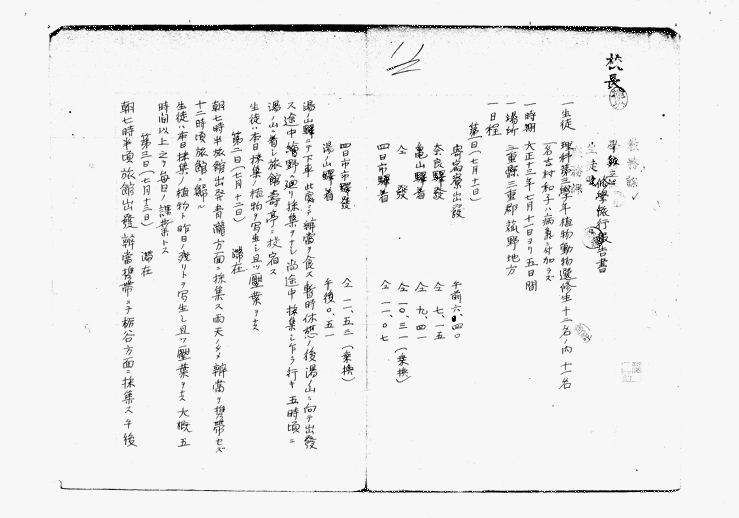 校長
教務課
学級主
生徒
修學旅行報告書
一生徒 理科第三學年植物動物選修生十二名ノ内十一名
(名古村和子ハ病氣ニ付加ラズ
一時期 大正十三年七月十一日ヨリ五日間
一場所 三重縣三重郡菰野地方
一日程
第一日(七月十一日)
寄宿寮出發 午前六.四〇
奈良驛發 仝 七.一五
龜山驛着 仝 九.四一
仝 發 仝 一〇.三一(乗換)
四日市驛着 仝 一一.〇七
四日市市驛發 仝 一一.五三(乗換)
湯ノ山驛着 午後〇.五一
湯ノ山驛ニテ下車 此處ニテ辨當ヲ食ス暫時休憩ノ後湯ノ山ニ向テ出發
ス途中 野ヘ廻リ採集ヲナシ尚途中採集シ乍ラ行キ五時頃ニ
湯ノ山ニ着シ旅館壽亭ニ投宿ス
生徒ハ本日採集ノ植物ヲ写生シ且ツ壓葉ヲナス
第二日(七月十二日) 滞在
朝七時半旅館出発青瀧方面ニ採集ス雨天ノタメ辨當ヲ携帯セズ
十二時頃旅館ニ歸ル
生徒ハ本日採集ノ植物ト昨日ノ残リトヲ写生シ且ツ壓葉ヲナス大概五
時間以上之ヲ毎日ノ課業トス
第三日(七月十三日) 滞在
朝七時半頃旅館出發辨當携帯ニテ栃谷方面ニ採集ス午後